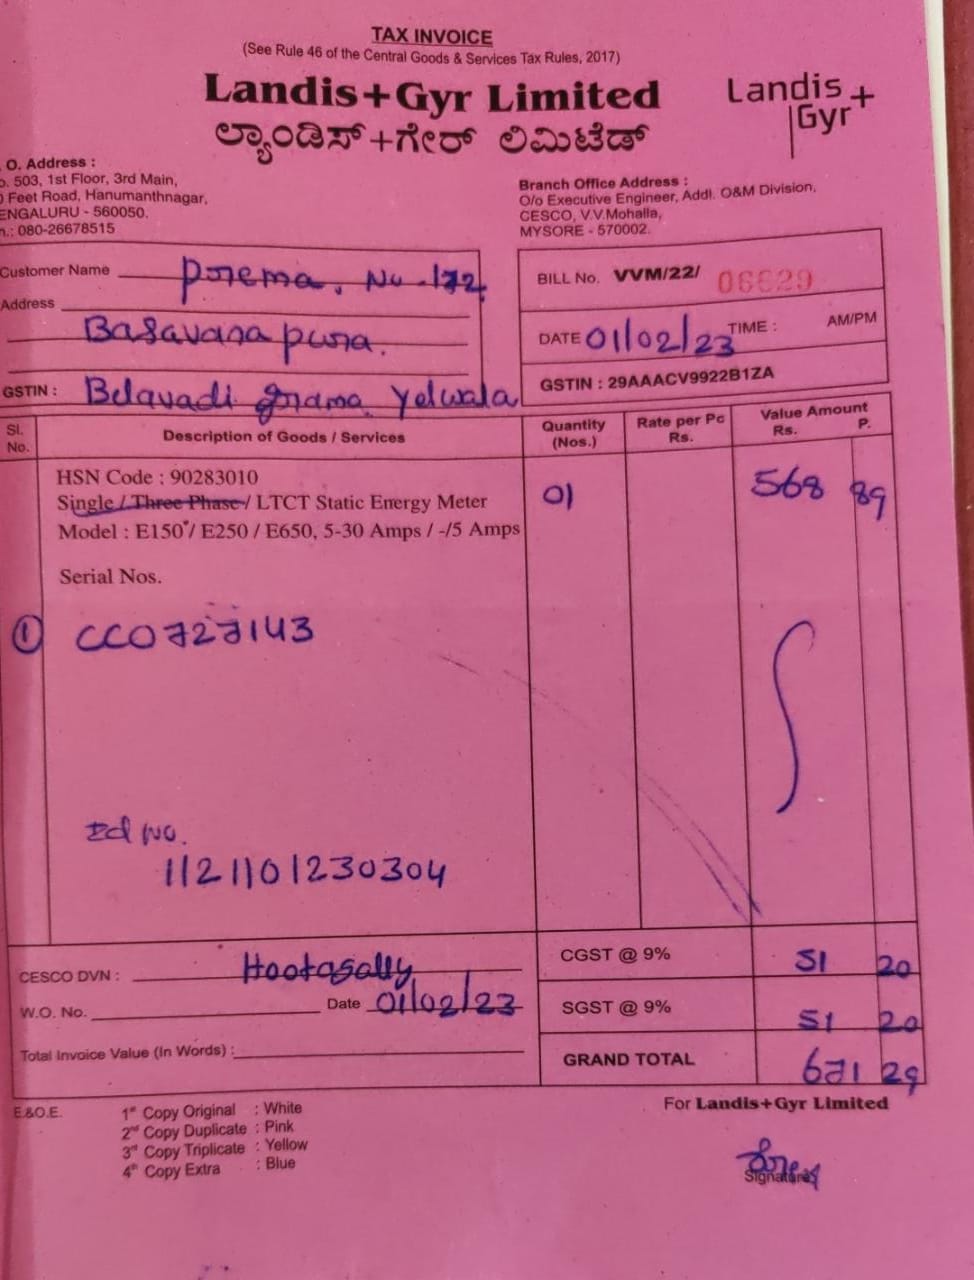 TAX INVOICE
(See Rule 46 of the Central Goods & Services Tax Rules, 2017)
Landis+Gyr Limited
ಲ್ಯಾಂಡಿಸ್+ಗೇರ್ ಲಿಮಿಟೆಡ್
Landis
Gyr+
O. Address :
503, 1st Floor, 3rd Main,
Feet Road, Hanumanthnagar,
ENGALURU - 560050.
n.: 080-26678515
Branch Office Address :
O/o Executive Engineer, Addl. O&M Division,
CESCO, V.V.Mohalla,
MYSORE - 570002.
Customer Name Prema. No -172
Address
Basavanapura.
GSTIN : Belavadi grama Yelwala
BILL No. VVM/22/ 06629
DATE 01/02/23 TIME : AM/PM
GSTIN : 29AAACV9922B1ZA
Sl. No. Description of Goods / Services Quantity (Nos.) Rate per Pc Rs. Value Amount Rs. P.
HSN Code : 90283010
Single / Three Phase / LTCT Static Energy Meter 01 568 89
Model : E150 / E250 / E650, 5-30 Amps / -/5 Amps
Serial Nos.
① CC0727143
Ed No.
1121101230304
CESCO DVN : Hootagally
W.O. No. Date 01/02/23
Total Invoice Value (In Words) :
CGST @ 9% 51 20
SGST @ 9% 51 20
GRAND TOTAL 671 29
E.&O.E.
1st Copy Original : White
2nd Copy Duplicate : Pink
3rd Copy Triplicate : Yellow
4th Copy Extra : Blue
For Landis+Gyr Limited
Signature